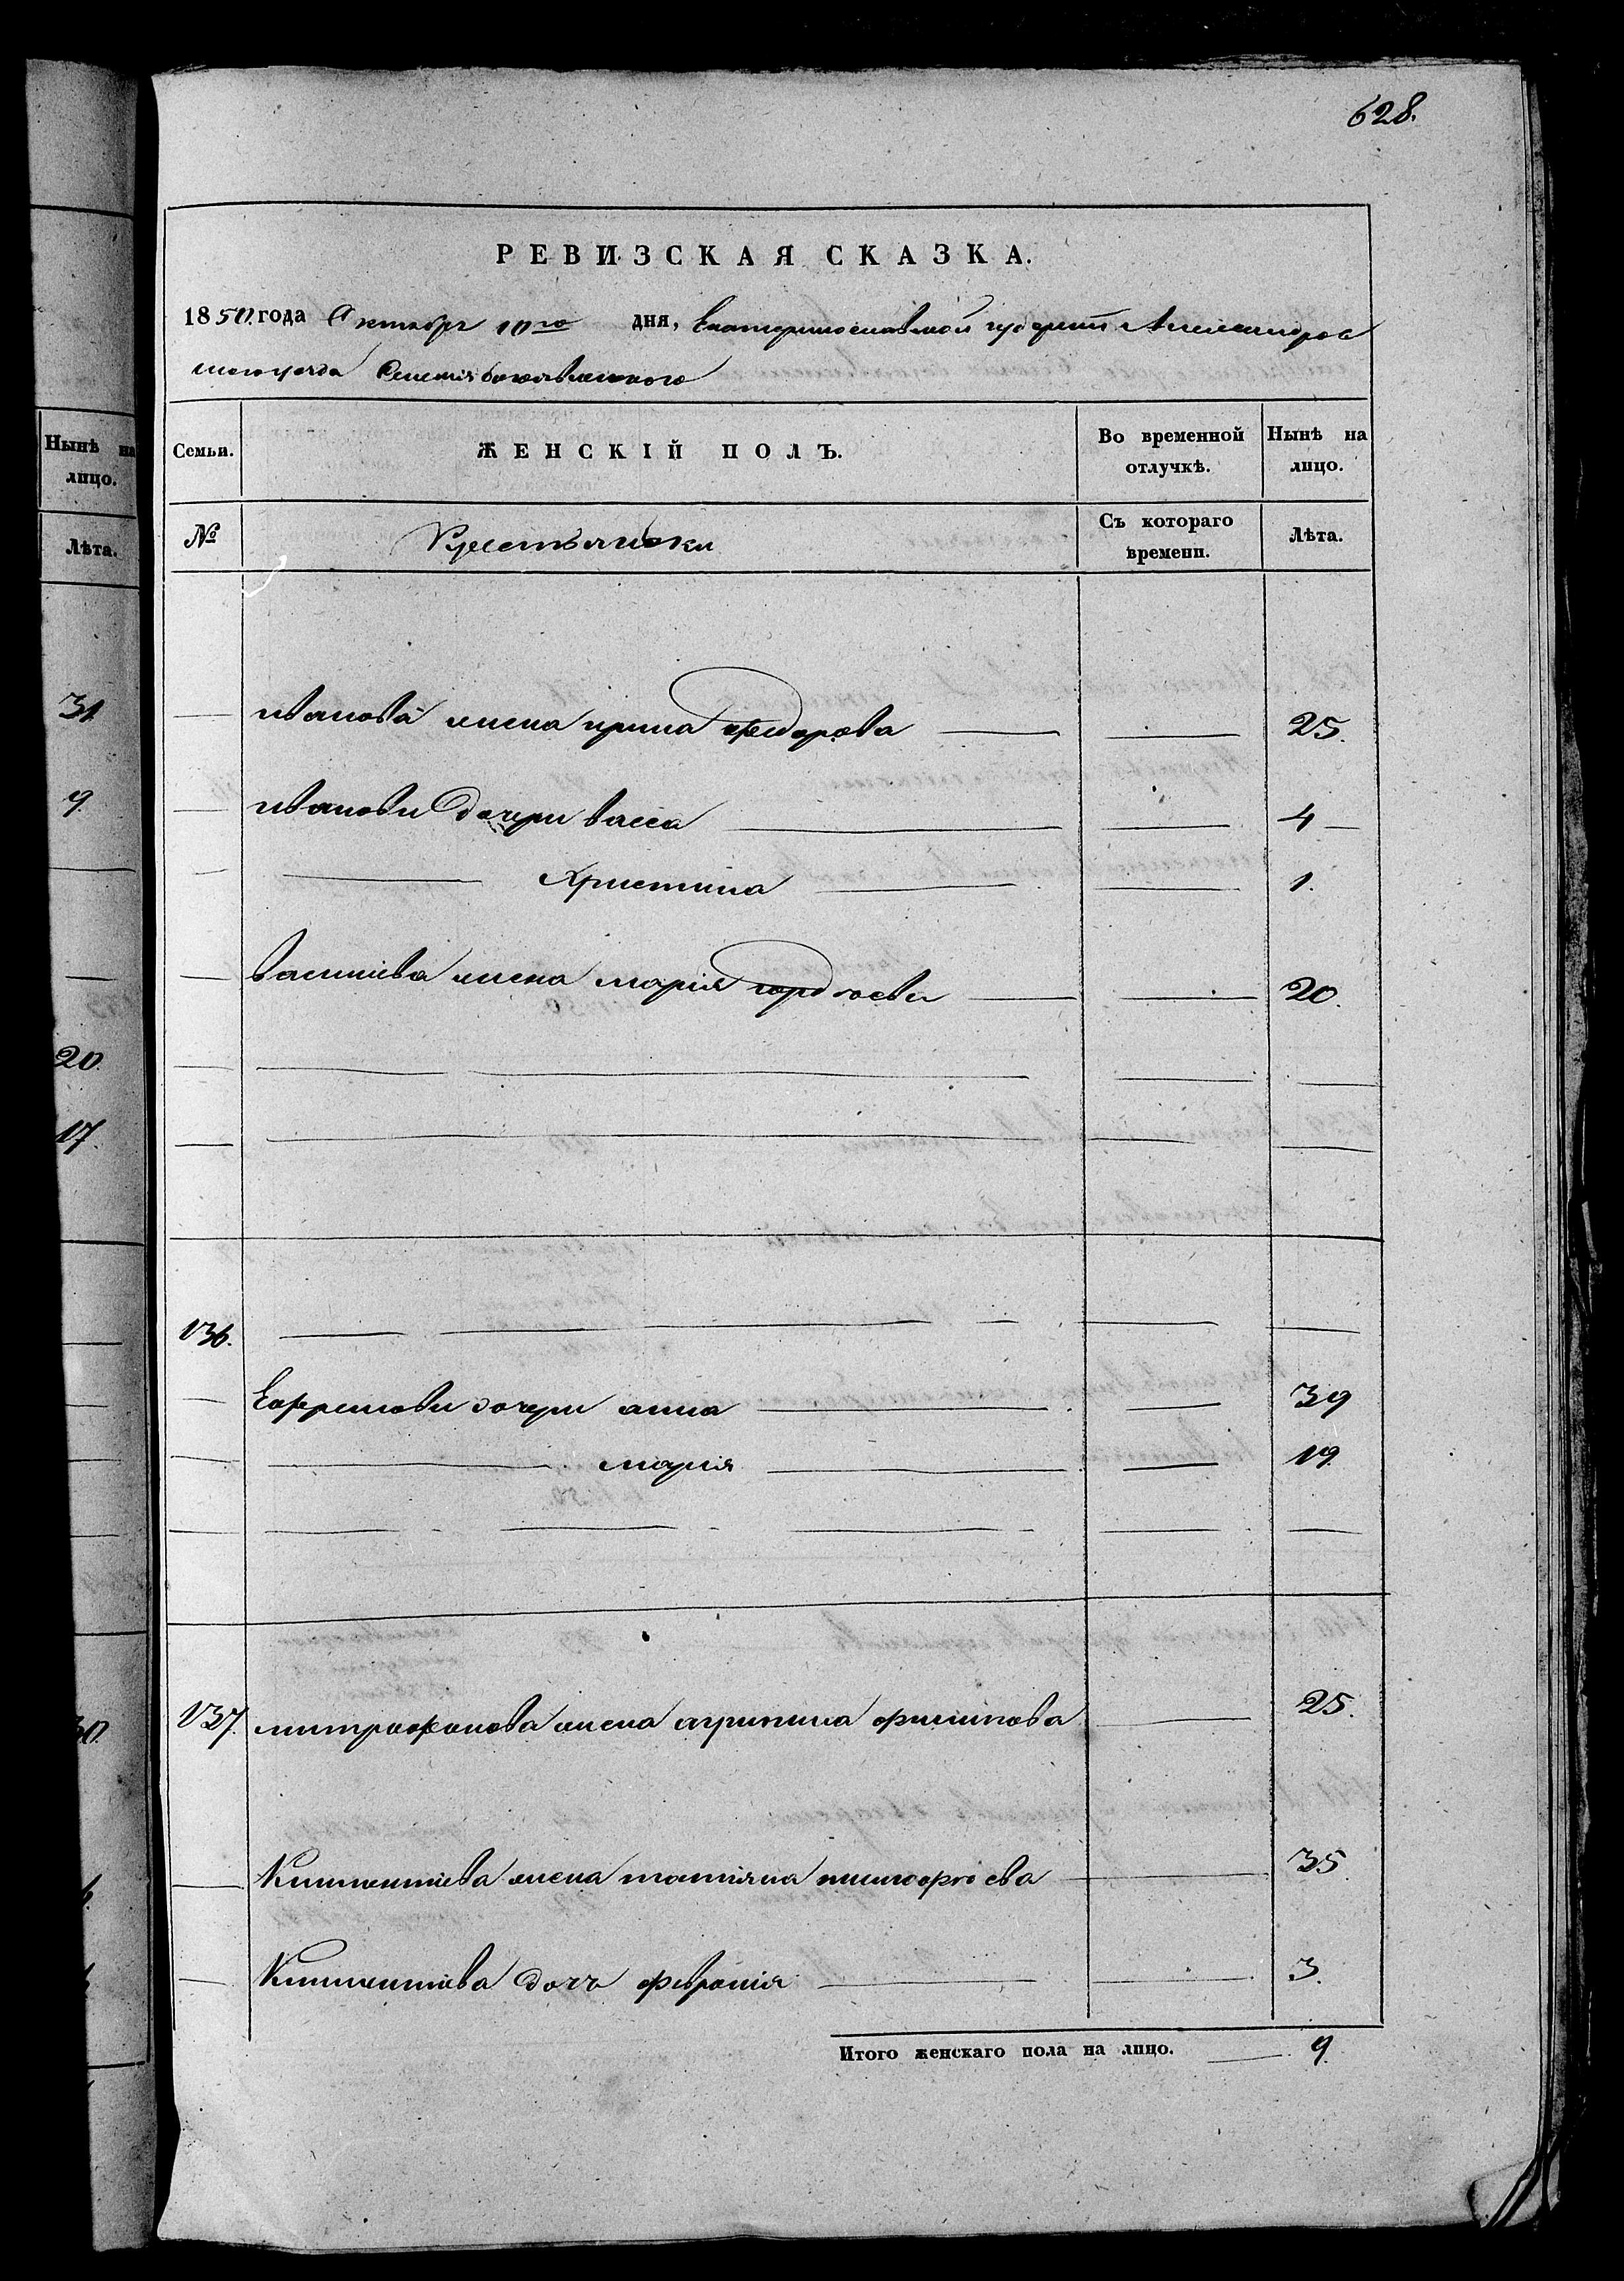 628.
РЕВИЗСКАЯ СКАЗКА.
1850 года Октября 10го дня, Екатеринославской губернии Александров
скаго уезда Селения Богоявленского
Нынѣ на лицо.
Лѣта.
31
9.
20.
17.
Семьи.
ЖЕНСКІЙ ПОЛЪ.
Во временной отлучкѣ.
Нынѣ на лицо.
№
Крестьянски
Съ котораго времени.
Лѣта.
иванова жена ирина федорова 25.
ивановы дочери васса 4
Христина 1.
васильева жена марія гордѣева 20.
136.
Ефремовы дочери анна 39
марія 19.
137. митрофанова жена агрипина филипова 25.
Климентіева жена татіяна тимофѣева 35
Климентіева дочь февронія 3.
Итого женскаго пола на лицо. 9.